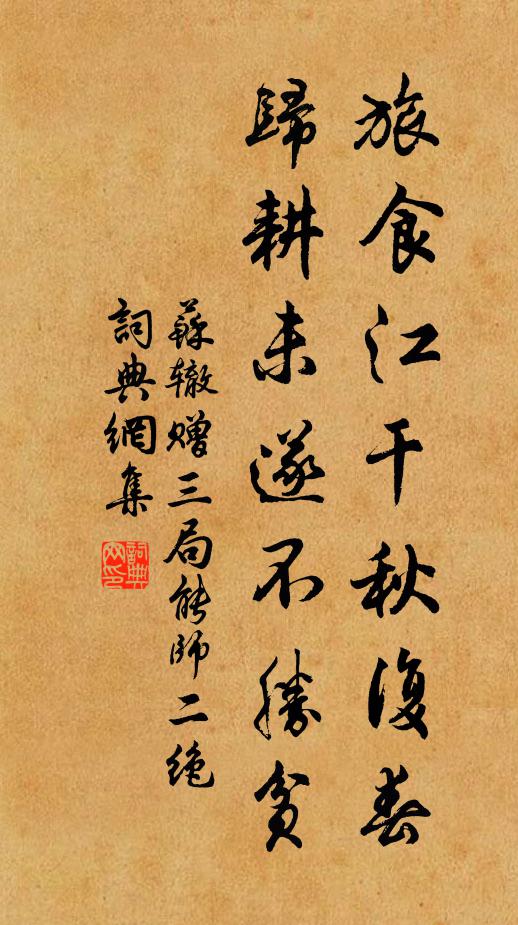 旅食江干秋復春
歸耕未遂不勝貧
蘇辙赠三局能師二绝
詞典網集
詞典网印